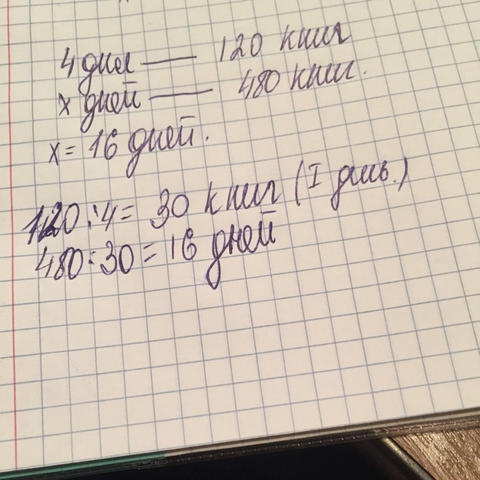 4 дня — 120 книг
х дней — 480 книг.
х = 16 дней.
120:4= 30 книг (I день.)
480:30=16 дней